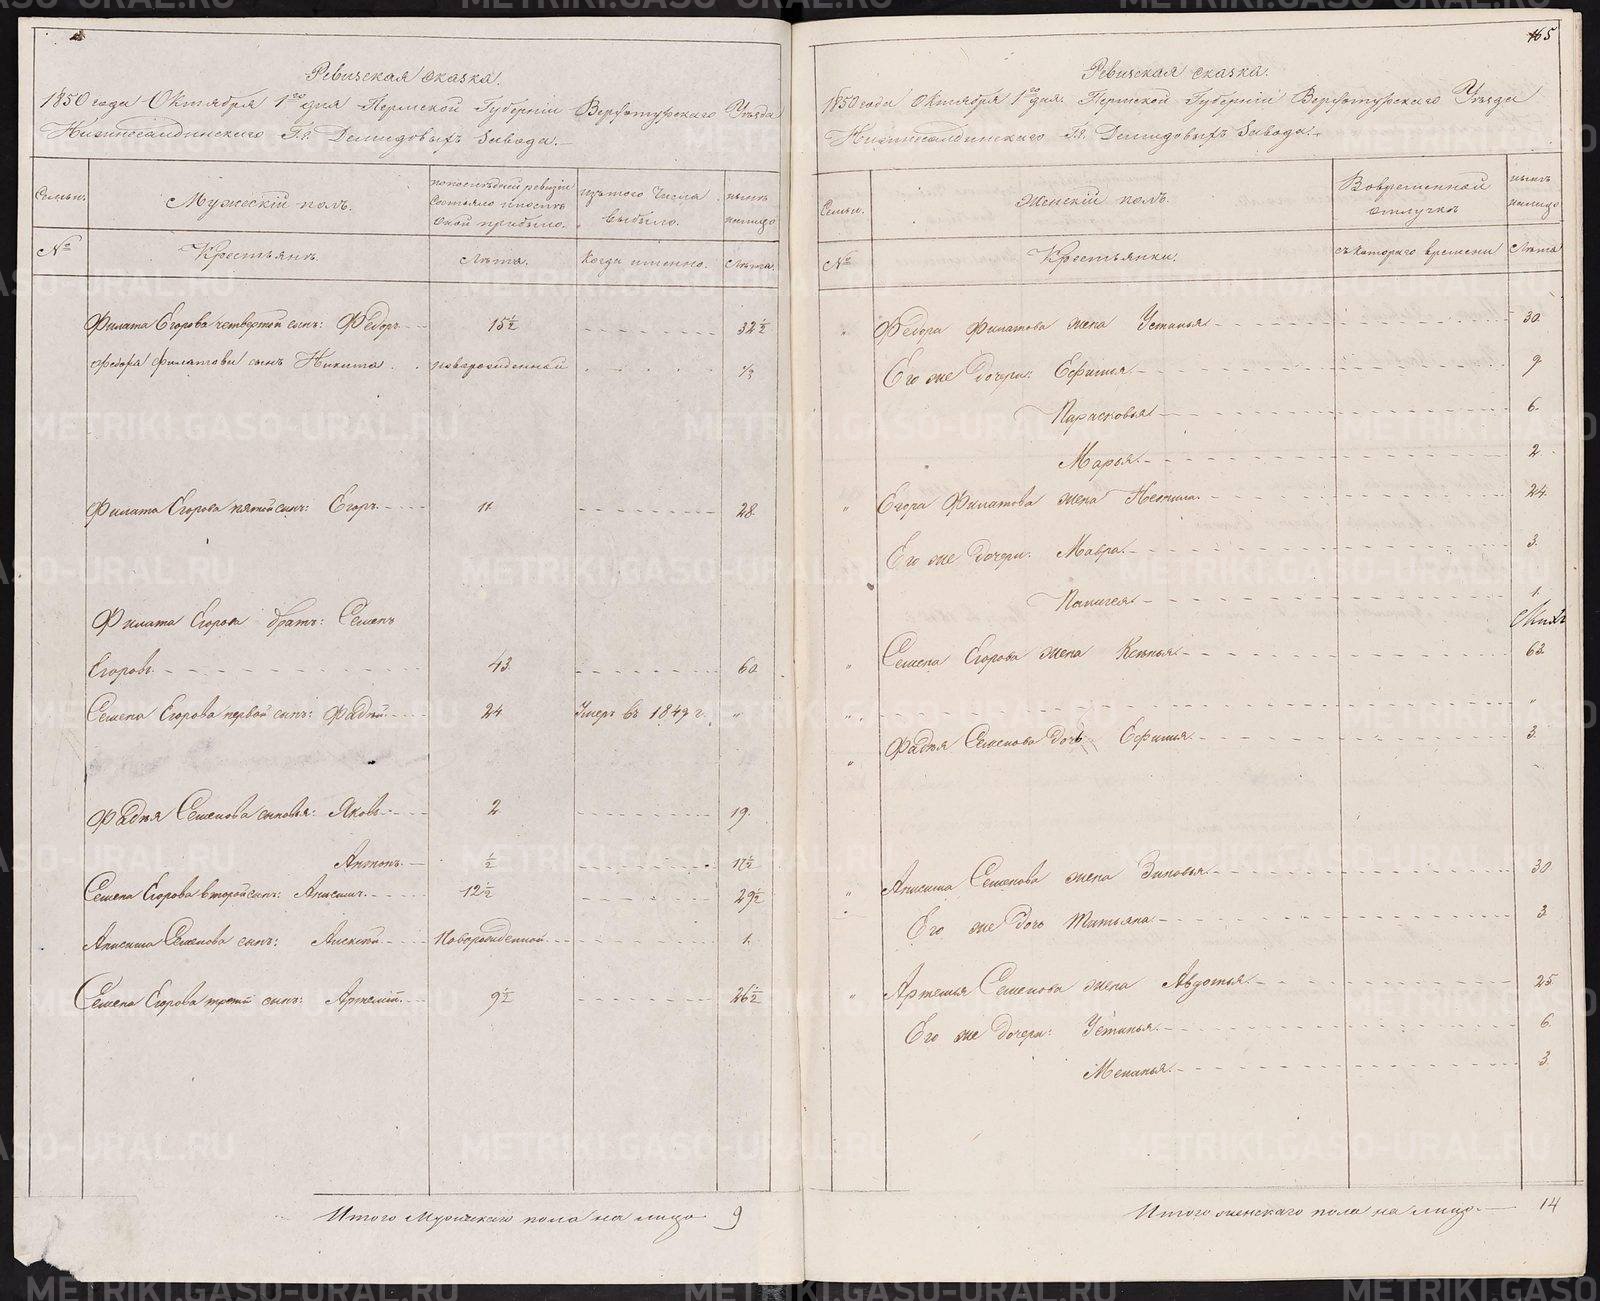 Ревизская сказка.
1850 года Октября 1го дня Пермской Губернiи Верхотурскаго Уѣзда
Нижнесалдинскаго Г.г. Демидовыхъ Завода.
Семьи. Мужескiй полъ. попослѣдней ревизiи состояло и послѣ оной прибыло. изъ того числа выбыло. нынѣ налицо
№ Крестьянъ. Лѣта. Когда именно. Лѣта.
Филата Егорова четвертой сынъ: Федоръ 15½ 32½
Федора Филатова сынъ Никита новорожденной 1/3
Филата Егорова пятой сынъ: Егоръ 11 28
Филата Егорова братъ: Семенъ
Егоровъ 43 60
Семена Егорова первой сынъ: Фадѣй 24 Умеръ въ 1849 г. "
Фадѣя Семенова сыновья: Яковъ 2 19.
Антонъ ½ 17½
Семена Егорова второй сынъ: Анисимъ 12½ 29½
Анисима Семенова сынъ: Алексѣй Новорожденной 1.
Семена Егорова третiй сынъ: Артемiй 9½ 26½
Итого Мужескаго пола на лицо 9
165
Ревизская сказка.
1850 года Октября 1го дня. Пермской Губернiи Верхотурскаго Уѣзда
Нижнесалдинскаго Г.г. Демидовыхъ Завода.
Семьи. Женскiй полъ. Вовременной отлучкѣ нынѣ налицо
№ Крестьянки. съ котораго времени Лѣта
" Федора Филатова жена Устинья 30.
Его же дочери: Ефимья 9
Парасковья 6.
Марья 2
" Егора Филатова жена Неонила 24.
Его же дочери: Мавра 3.
Пелагея 1.
" Семена Егорова жена Ксенья 63.
" "
" Фадѣя Семенова дочь Ефимья 3.
" Анисима Семенова жена Зиновья 30.
Его же дочь Татьяна 3
" Артемья Семенова жена Авдотья 25
Его же дочери: Устинья 6.
Меланья 3.
Итого женскаго пола на лицо 14
METRIKI.GASO-URAL.RU